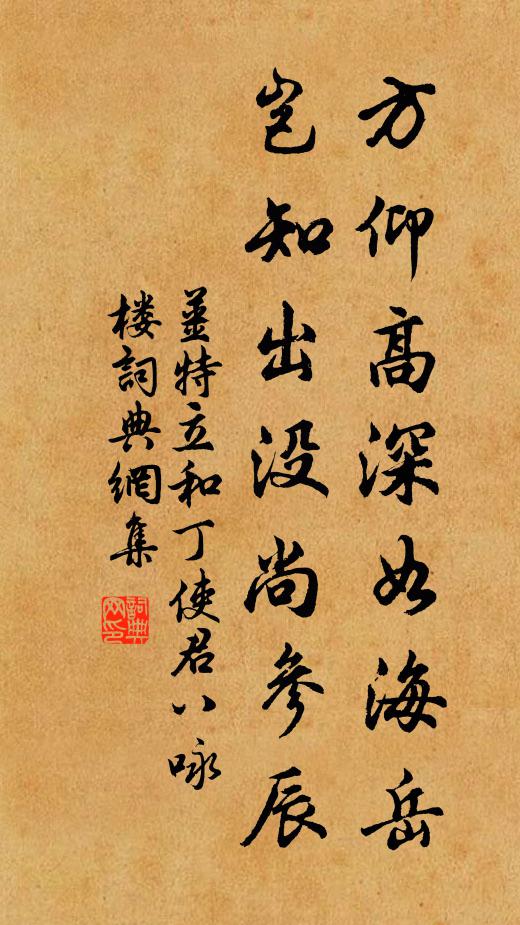 方仰高深如海岳
岂知出没尚參辰
姜特立和丁使君八咏
楼詞典網集
詞典
网印